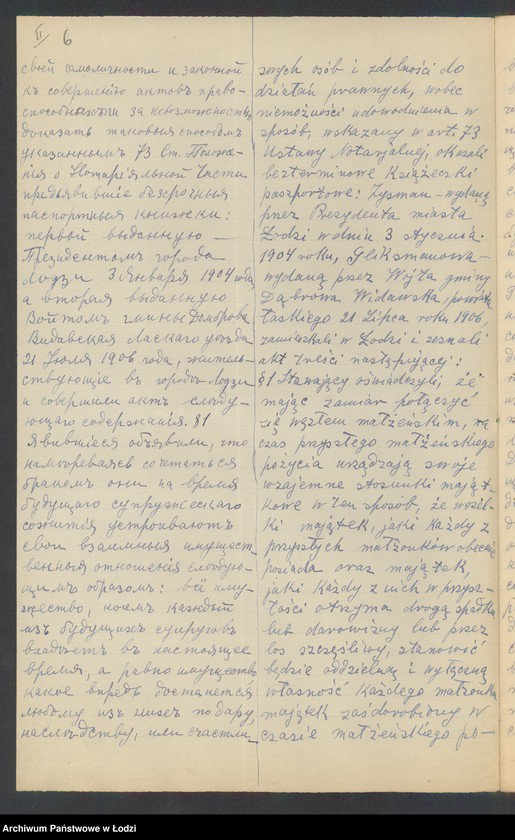 II 6
своей самоличности и законной
къ совершенію актовъ право-
способности за невозможностью
доказать таковыя способомъ
указаннымъ 73 Ст. Положе-
нія о Нотаріяльной Части
предъявившіе безсрочныя
паспортныя книжки:
первый выданную —
Президентомъ города
Лодзи 3 Января 1904 года,
а вторая выданную
Войтомъ гмины Домброва
Видавская Ласкаго уѣзда
21 Іюля 1906 года, житель-
ствующіе въ городѣ Лодзи
и совершили актъ слѣду-
ющаго содержанія. §1
Явившіеся объявили, что
намѣреваясь сочетаться
бракомъ они на время
будущаго супружескаго
сожитія устроиваютъ
свои взаимныя имущест-
венныя отношенія слѣдую-
щимъ образомъ: всё иму-
жество, коимъ каждый
изъ будущихъ супруговъ
владѣетъ въ настоящее
время, а равно имущество
какое впредь достанется
любому изъ нихъ по дару,
наслѣдству, или счастли-
snych osób i zdolności do
działań prawnych, wobec
niemożności udowodnienia w
sposób, wskazany w art. 73
Ustawy Notarjalnej, okazali
bezterminowe książeczki
paszportowe: Zysman – wydaną
przez Prezydenta miasta
Łodzi w dniu 3 stycznia
1904 roku, Gliksmanowa –
wydaną przez Wójta gminy
Dąbrowa Widawska, powiatu
Łaskiego 21 Lipca roku 1906,
zamieszkali w Łodzi i zeznali
akt treści następującej:
§1 Stawający oświadczyli, że
mając zamiar połączyć
się węzłem małżeńskim, na
czas przyszłego małżeńskiego
pożycia urządzają swoje
wzajemne stosunki mająt-
kowe w ten sposób, że wszel-
ki majątek, jaki każdy z
przyszłych małżonków obecnie
posiada oraz majątek,
jaki każdy z nich w przysz-
łości otrzyma drogą spadku
lub darowizny lub przez
los szczęśliwy, stanowić
będzie oddzielną i wyłączną
własność każdego małżonka
majątek zaś dorobiony w
czasie małżeńskiego po-
Archiwum Państwowe w Łodzi